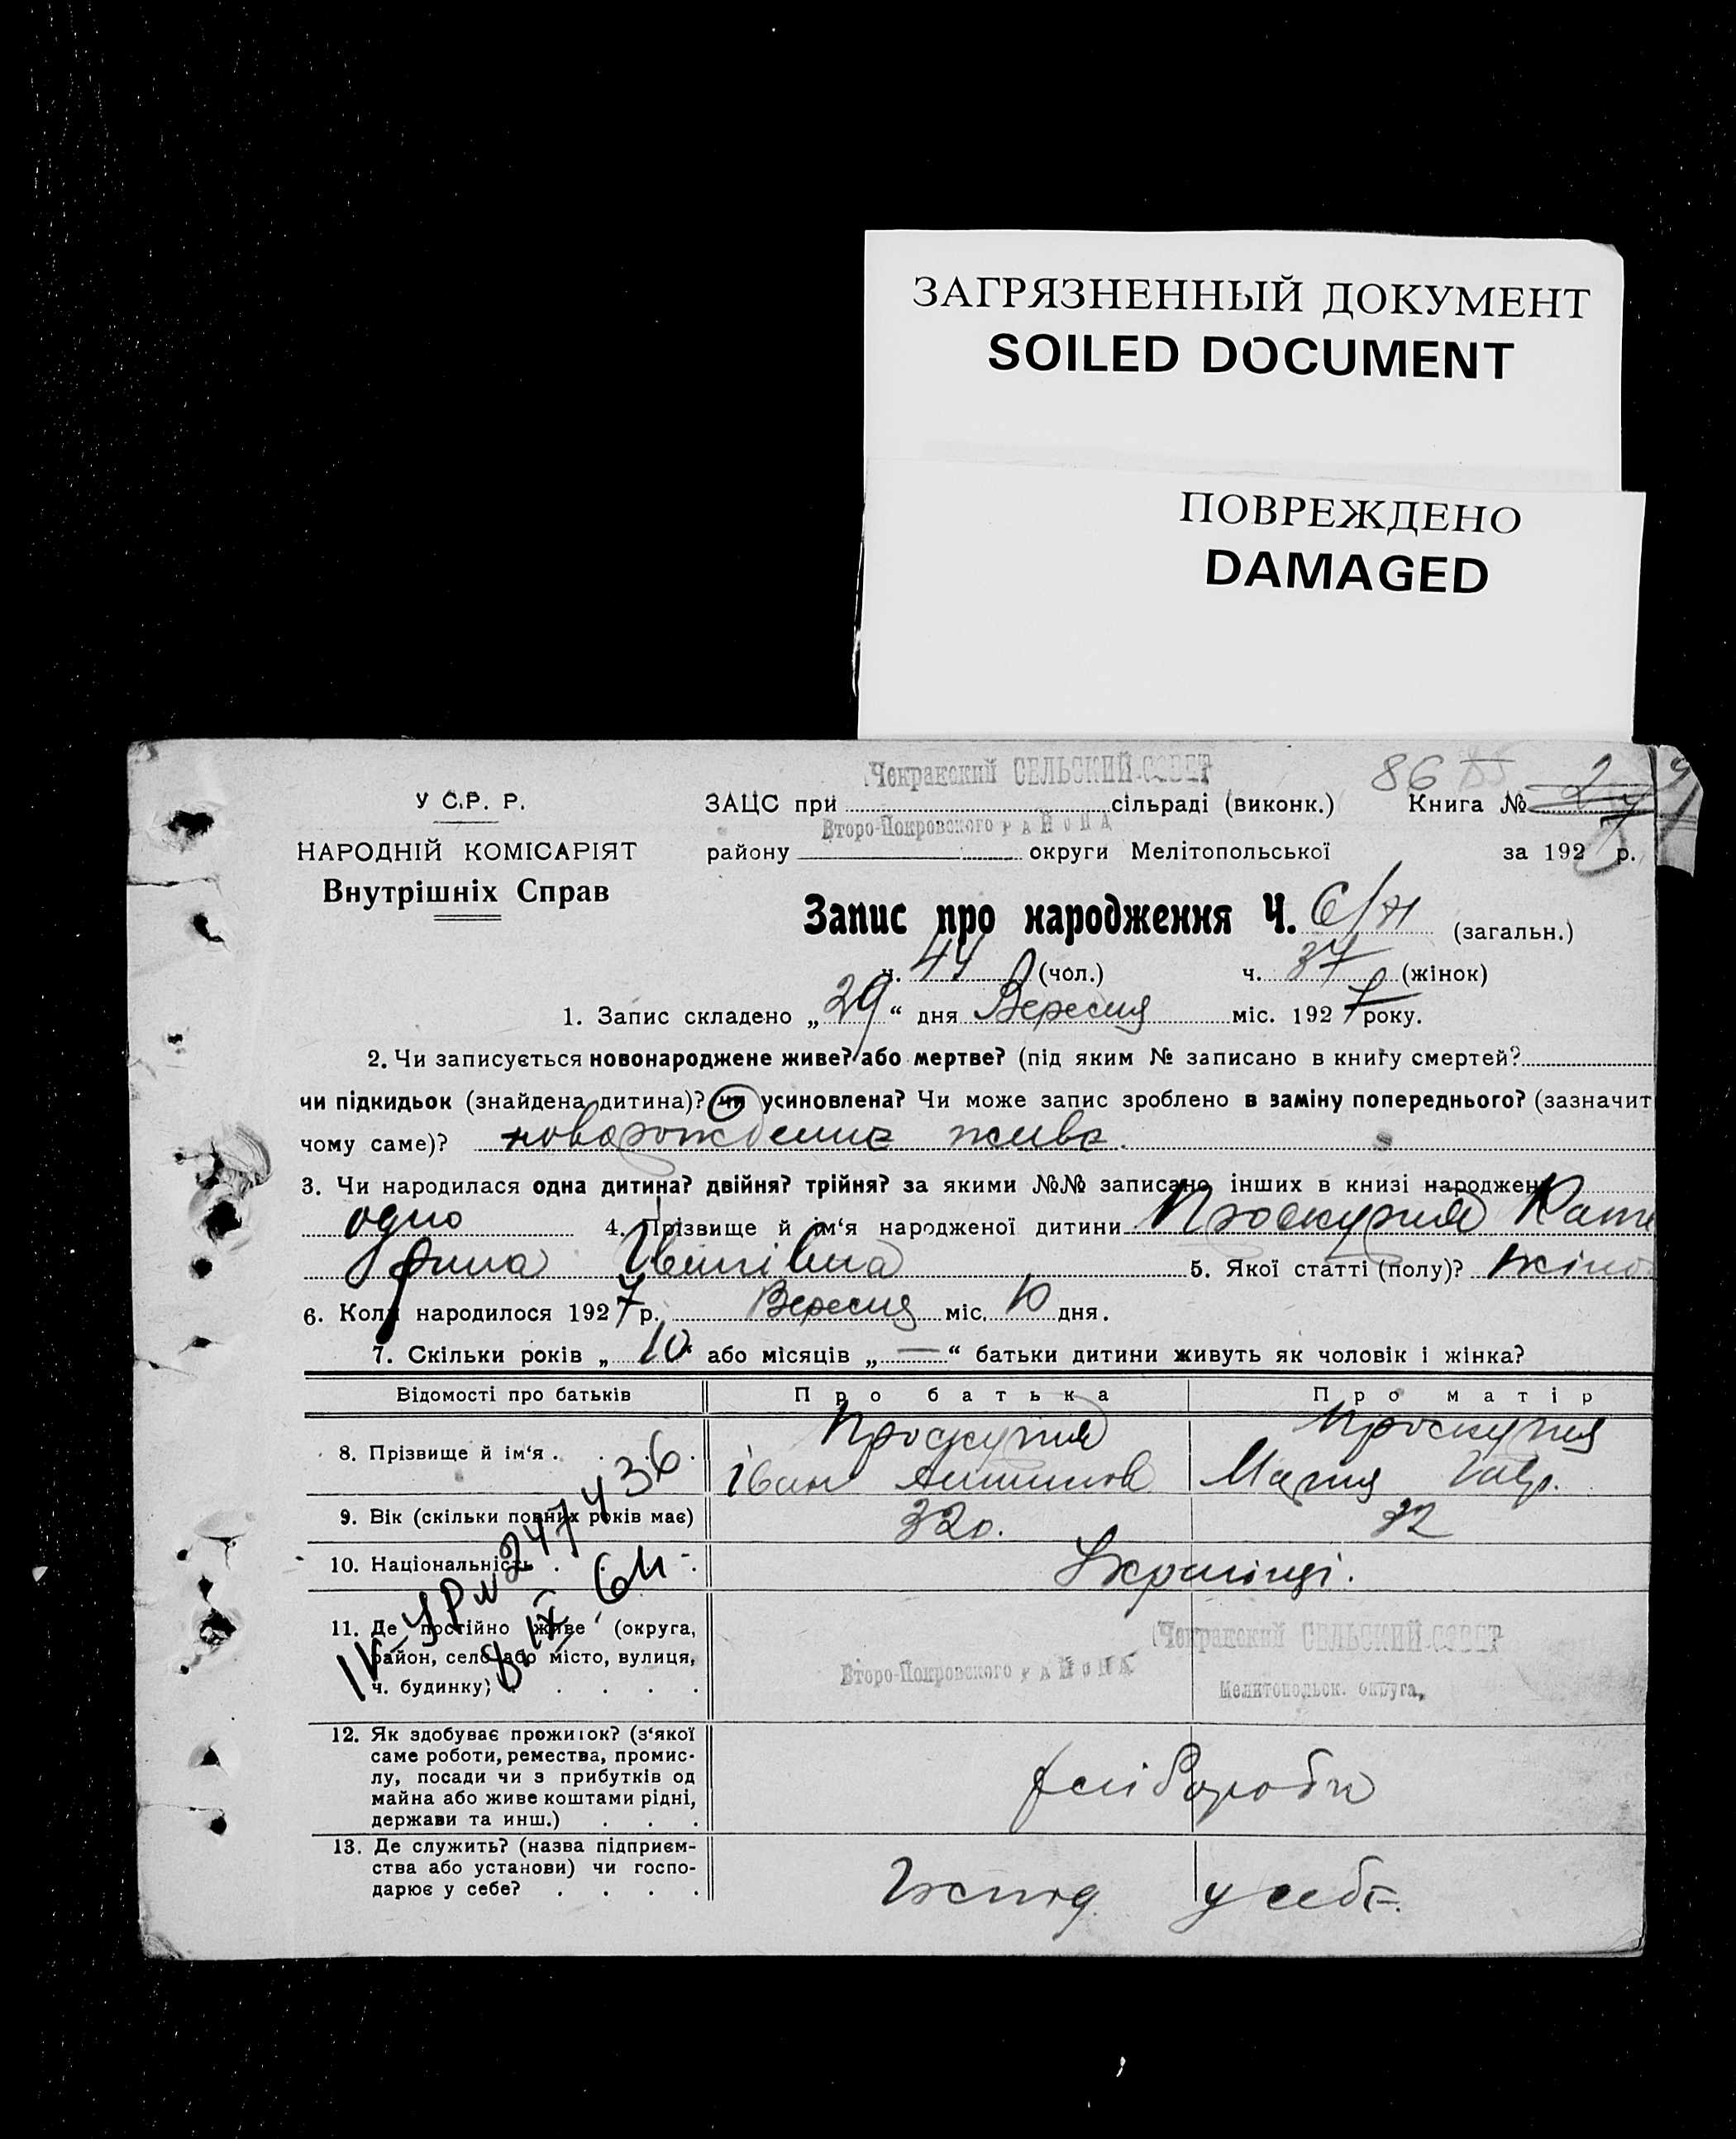 ЗАГРЯЗНЕННЫЙ ДОКУМЕНТ
SOILED DOCUMENT
ПОВРЕЖДЕНО
DAMAGED
Чекракский СЕЛЬСКИЙ СОВЕТ
86
У С.Р. Р. ЗАЦС при сільраді (виконк.) Книга №
Второ-Покровского РАЙОНА
НАРОДНІЙ КОМІСАРІЯТ району округи Мелітопольської за 1927 р.
Внутрішніх Справ
Запис про народження Ч. (загальн.)
ч. 44 (чол.) ч. 37 (жінок)
1. Запис складено „29“ дня Вересня міс. 1927 року.
2. Чи записується новонароджене живе? або мертве? (під яким № записано в книгу смертей?
чи підкидьок (знайдена дитина)? чи усиновлена? Чи може запис зроблено в заміну попереднього? (зазначит
чому саме)? новорождение живе.
3. Чи народилася одна дитина? двійня? трійня? за якими №№ записано інших в книзі народжен
одно 4. Прізвище й ім‘я народженої дитини Проскурня Кате
рина Іванівна 5. Якої статті (полу)? жіно
6. Коли народилося 1927 р. Вересня міс. 10 дня.
7. Скільки років „10“ або місяців „—“ батьки дитини живуть як чоловік і жінка?
Відомості про батьків Про батька Про матір
8. Прізвище й ім‘я . Проскурня Проскурня
Іван Мария Гавр.
9. Вік (скільки повних років має) 32 32
10. Національність Українці.
11. Де постійно живе (округа, Чекракский СЕЛЬСКИЙ СОВЕТ
район, село або місто, вулиця, Второ-Покровского РАЙОНА
ч. будинку) Мелитопольск. округа,
12. Як здобуває прожиток? (з‘якої
саме роботи, ремества, промис-
лу, посади чи з прибутків од
майна або живе коштами рідні,
держави та инш.)
13. Де служить? (назва підприєм-
ства або установи) чи госпо-
дарює у себе? у себе.